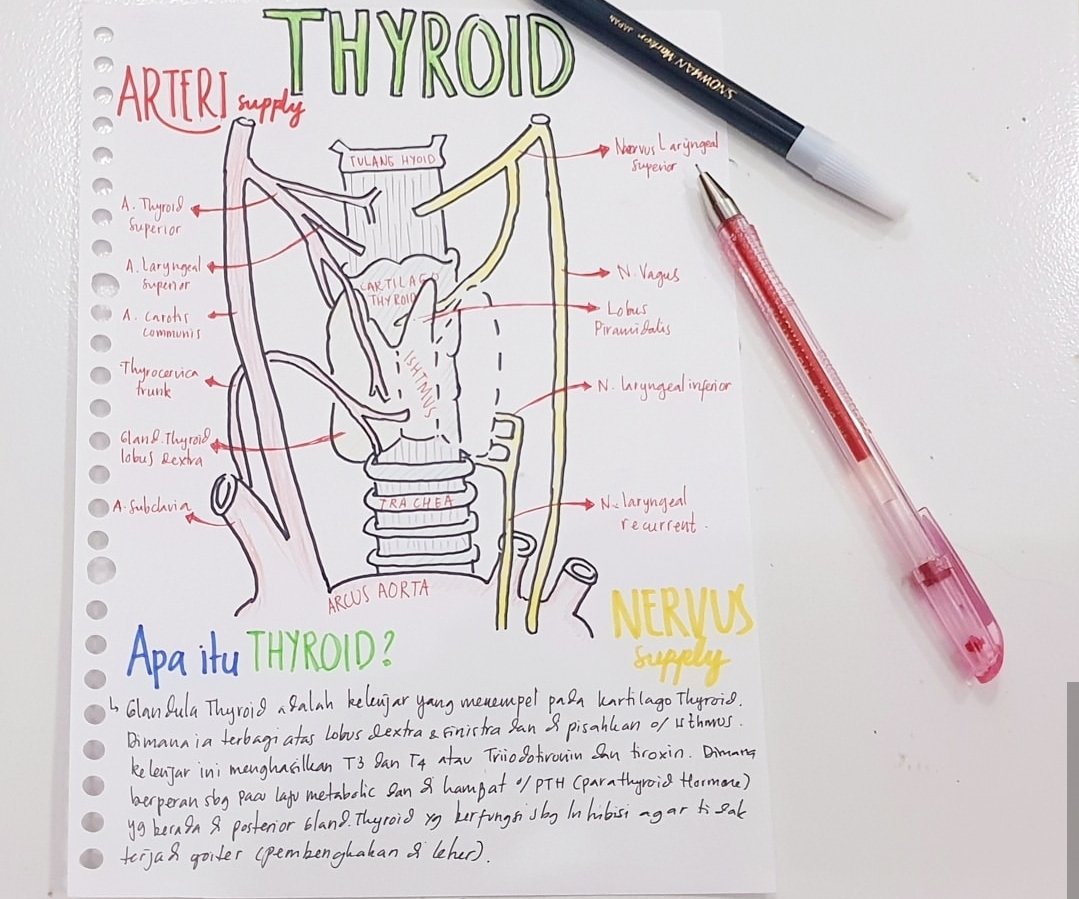 THYROID
ARTERI supply
TULANG HYOID
Nervus Laryngeal
superior
A. Thyroid
superior
A. Laryngeal
superior
A. Carotis
communis
Thyrocervica
trunk
Gland. Thyroid
lobus dextra
A. Subclavia
CARTILAGO
THYROID
ISHTMUS
TRACHEA
ARCUS AORTA
N. Vagus
Lobus
Piramidalis
N. laryngeal inferior
N. laryngeal
recurrent.
NERVUS
supply
Apa itu THYROID?
Glandula Thyroid adalah kelenjar yang menempel pada kartilago Thyroid.
Dimana ia terbagi atas Lobus dextra & sinistra dan di pisahkan o/ isthmus.
kelenjar ini menghasilkan T3 dan T4 atau Triiodotironin dan tiroxin. Dimana
berperan sbg pacu laju metabolic dan di hambat o/ PTH (parathyroid Hormone)
yg berada di posterior Gland. Thyroid yg berfungsi sbg Inhibisi agar tidak
terjadi goiter (pembengkakan di leher).
SNOWMAN Marker JAPAN